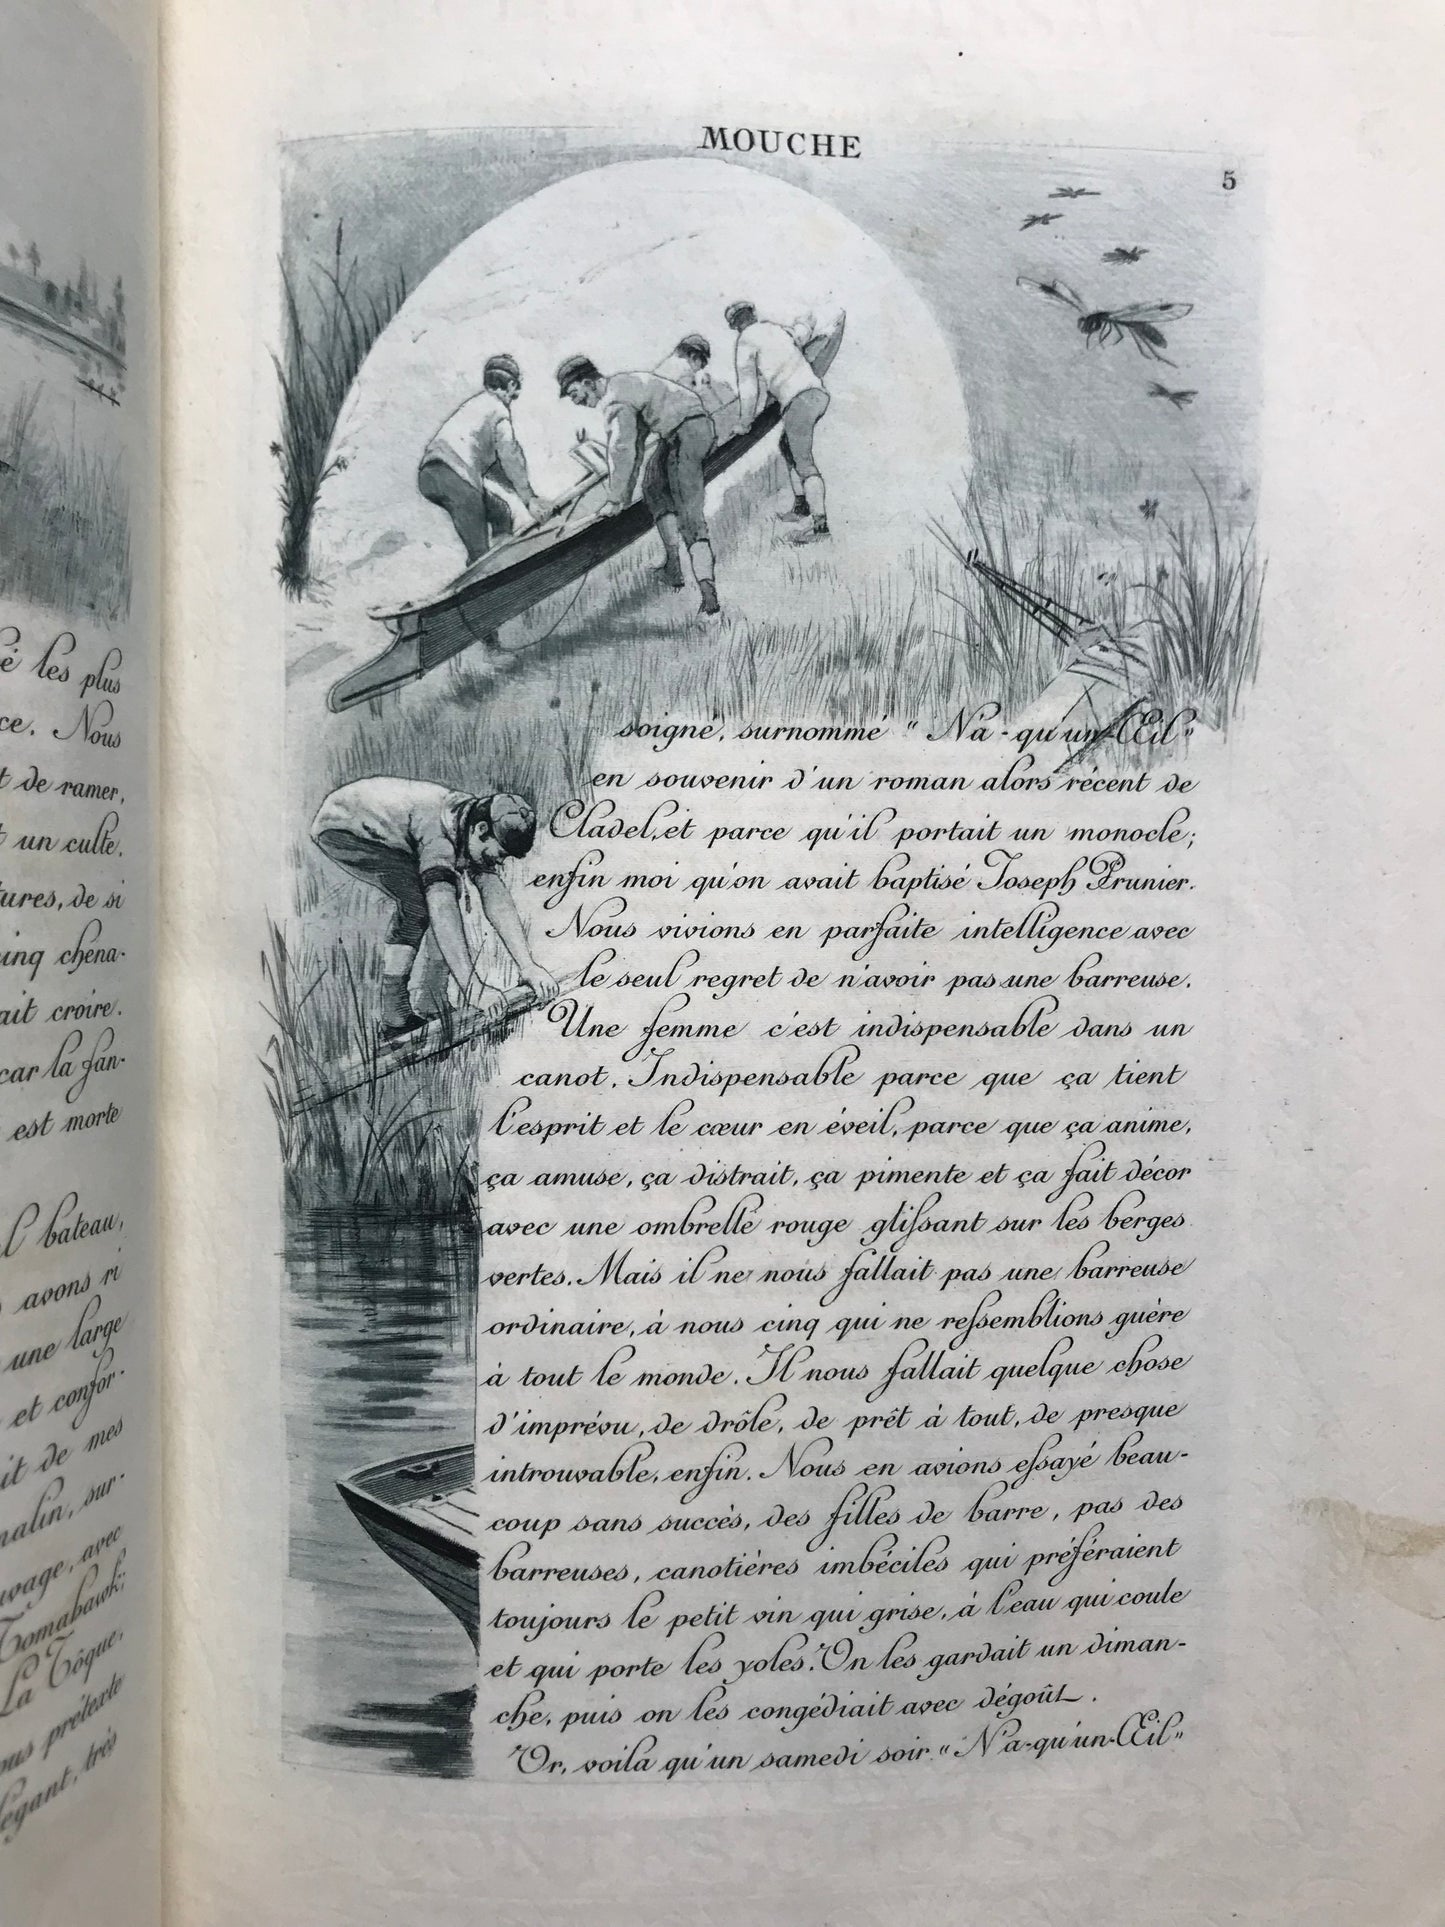 é les plus
ce. Nous
t de ramer,
t un culte.
tures, de si
cinq chena-
ait croire.
car la fan-
est morte
l bateau,
avons ri
une large
et confor-
it de mes
malin, sur-
uvage, avec
Tomahawk;
La Tôque,
ous prétexte
légant, très
MOUCHE
5
soigné, surnommé "Na-qu'un-Œil"
en souvenir d'un roman alors récent de
Cladel, et parce qu'il portait un monocle;
enfin moi qu'on avait baptisé Joseph Prunier.
Nous vivions en parfaite intelligence avec
le seul regret de n'avoir pas une barreuse.
Une femme c'est indispensable dans un
canot. Indispensable parce que ça tient
l'esprit et le cœur en éveil, parce que ça anime,
ça amuse, ça distrait, ça pimente et ça fait décor
avec une ombrelle rouge glissant sur les berges
vertes. Mais il ne nous fallait pas une barreuse
ordinaire, à nous cinq qui ne ressemblions guère
à tout le monde. Il nous fallait quelque chose
d'imprévu, de drôle, de prêt à tout, de presque
introuvable, enfin. Nous en avions essayé beau-
coup sans succès, des filles de barre, pas des
barreuses, canotières imbéciles qui préféraient
toujours le petit vin qui grise, à l'eau qui coule
et qui porte les yoles. On les gardait un diman-
che, puis on les congédiait avec dégoût.
Or, voila qu'un samedi soir "N'a-qu'un-Œil"